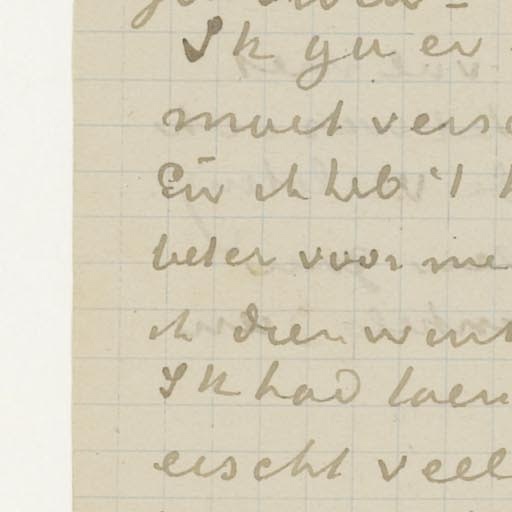 Ik gu er
moet vers
En ik heb 't
beter voor me
ik dien wint
Ik had toen
eerscht veel